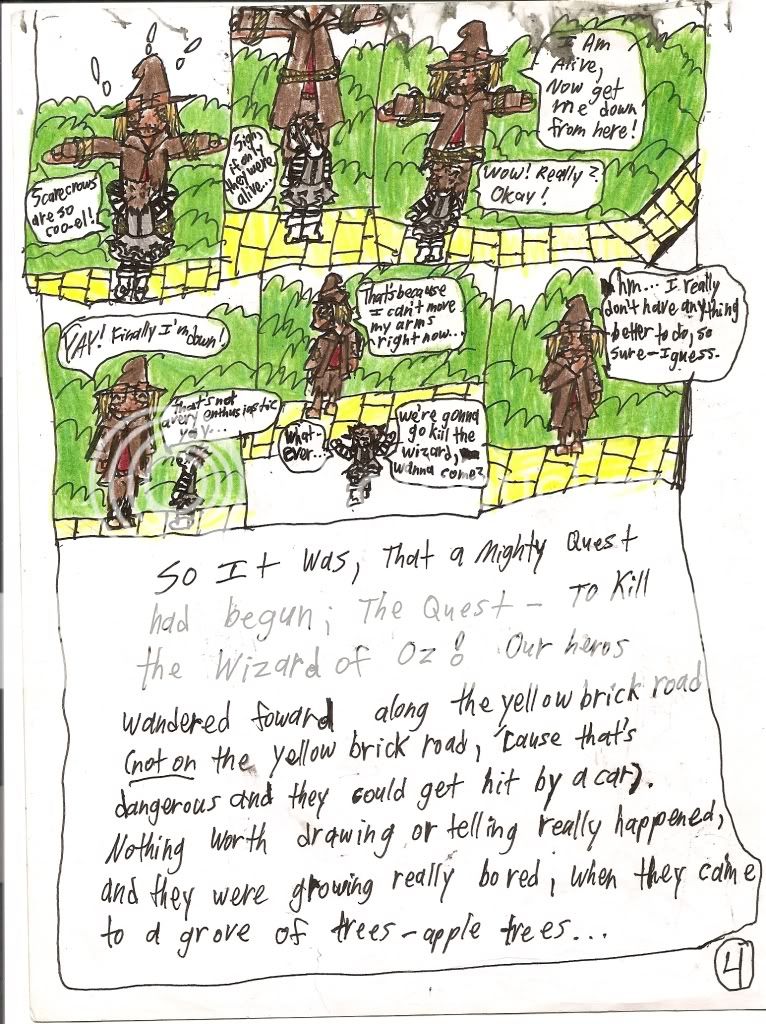 Scarecrows
are so
coo-el!
Sigh,
if only
they were
alive...
I Am
Alive,
Now get
me down
from here!
Wow! Really?
Okay!
YAY! Finally I'm down!
That's not
a very enthusiastic
yay...
That's because
I can't move
my arms
right now...
What-
ever...
we're gonna
go kill the
wizard,
wanna come?
hm... I really
don't have anything
better to do, so
sure-I guess.
So It Was, That a Mighty Quest
had begun; The Quest - To Kill
the Wizard of Oz! Our heros
wandered foward along the yellow brick road
(not on the yellow brick road, 'cause that's
dangerous and they could get hit by a car).
Nothing worth drawing or telling really happened,
and they were growing really bored; when they came
to a grove of trees-apple trees...
4